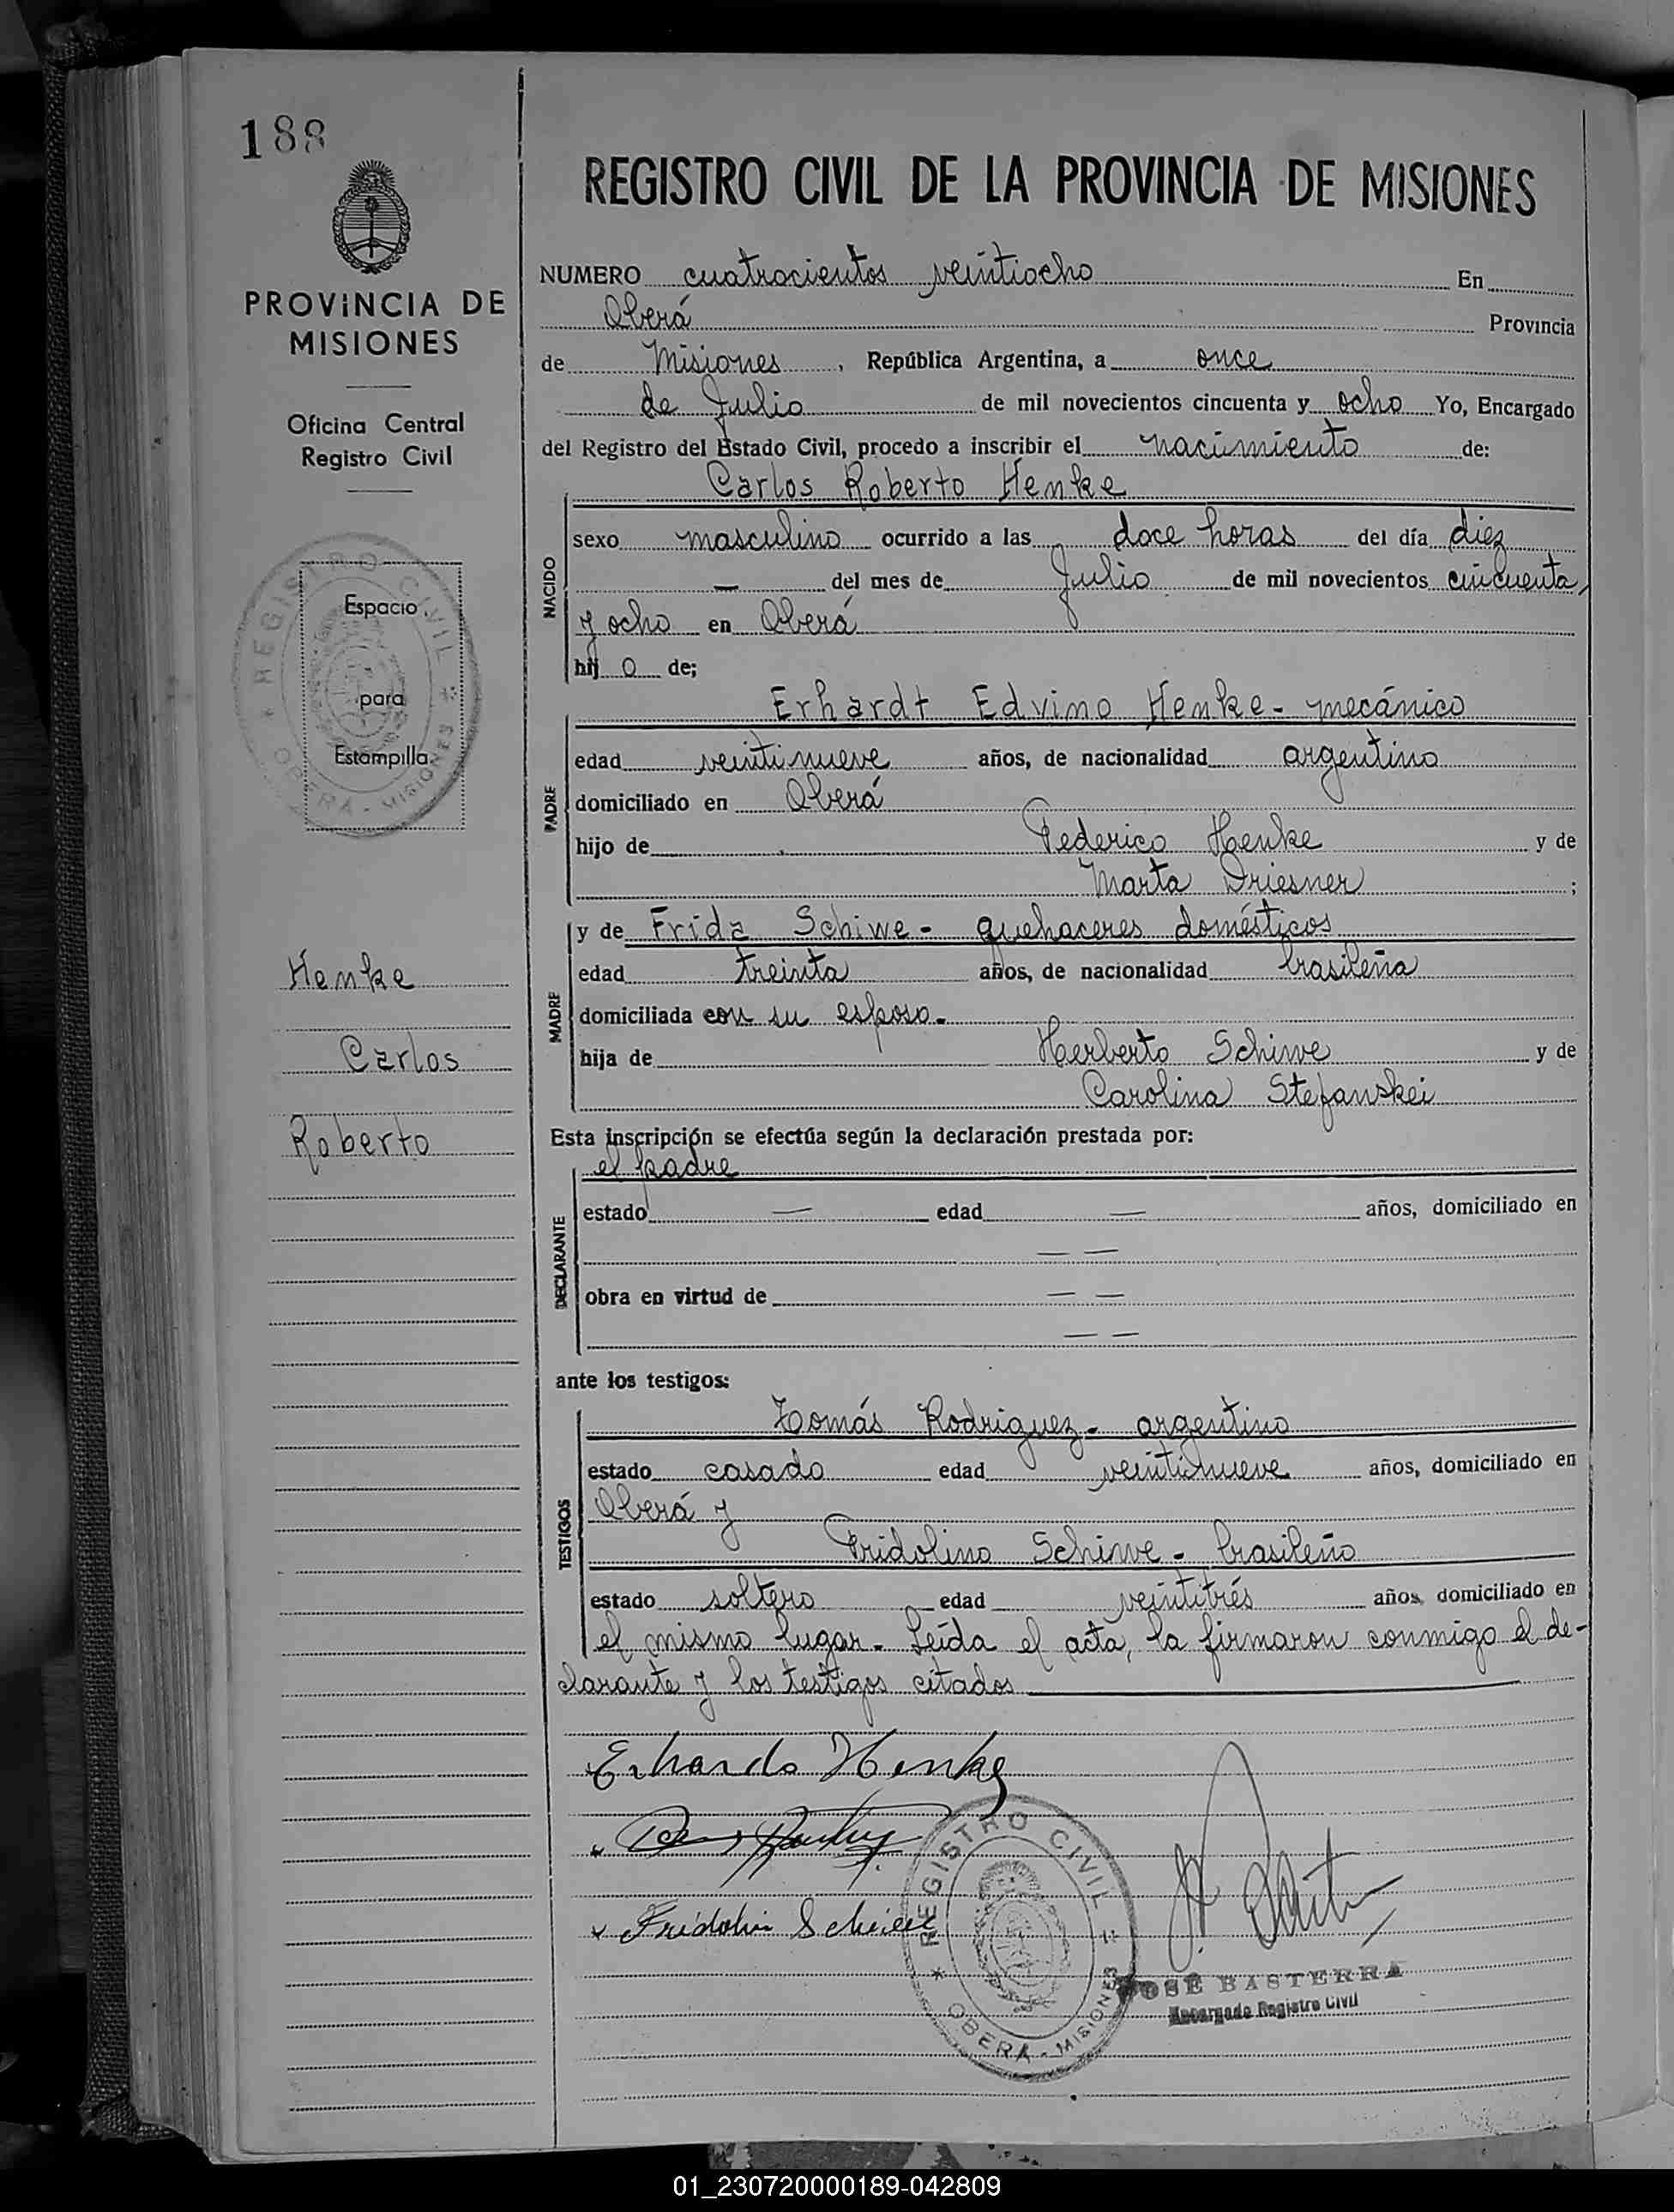 188
PROVINCIA DE
MISIONES
Oficina Central
Registro Civil
REGISTRO CIVIL
OBERA - MISIONES
Espacio
para
Estampilla
Henke
Carlos
Roberto
REGISTRO CIVIL DE LA PROVINCIA DE MISIONES
NUMERO cuatrocientos veintiocho En
Oberá Provincia
de Misiones, República Argentina, a once
de Julio de mil novecientos cincuenta y ocho Yo, Encargado
del Registro del Estado Civil, procedo a inscribir el nacimiento de:
Carlos Roberto Henke
NACIDO
sexo masculino ocurrido a las doce horas del día diez
— del mes de Julio de mil novecientos cincuenta
y ocho en Oberá
hij o de;
Erhardt Edvino Henke - mecánico
PADRE
edad veintinueve años, de nacionalidad argentino
domiciliado en Oberá
hijo de Federico Henke y de
Marta Driesner ;
y de Frida Schiwe - quehaceres domésticos
MADRE
edad treinta años, de nacionalidad brasileña
domiciliada con su esposo.
hija de Herberto Schiwe y de
Carolina Stefanskei
Esta inscripción se efectúa según la declaración prestada por:
el padre
DECLARANTE
estado — edad — años, domiciliado en
— —
obra en virtud de — —
— —
ante los testigos:
Tomás Rodriguez - argentino
TESTIGOS
estado casado edad veintinueve años, domiciliado en
Oberá y
Fridolino Schiwe - brasileño
estado soltero edad veintitrés años, domiciliado en
el mismo lugar. Leída el acta, la firmaron conmigo el de-
clarante y los testigos citados
Erhardo Henke
Fridolin
REGISTRO CIVIL
OBERA - MISIONES
JOSÉ BASTERRA
Encargado Registro Civil
01_230720000189-042809